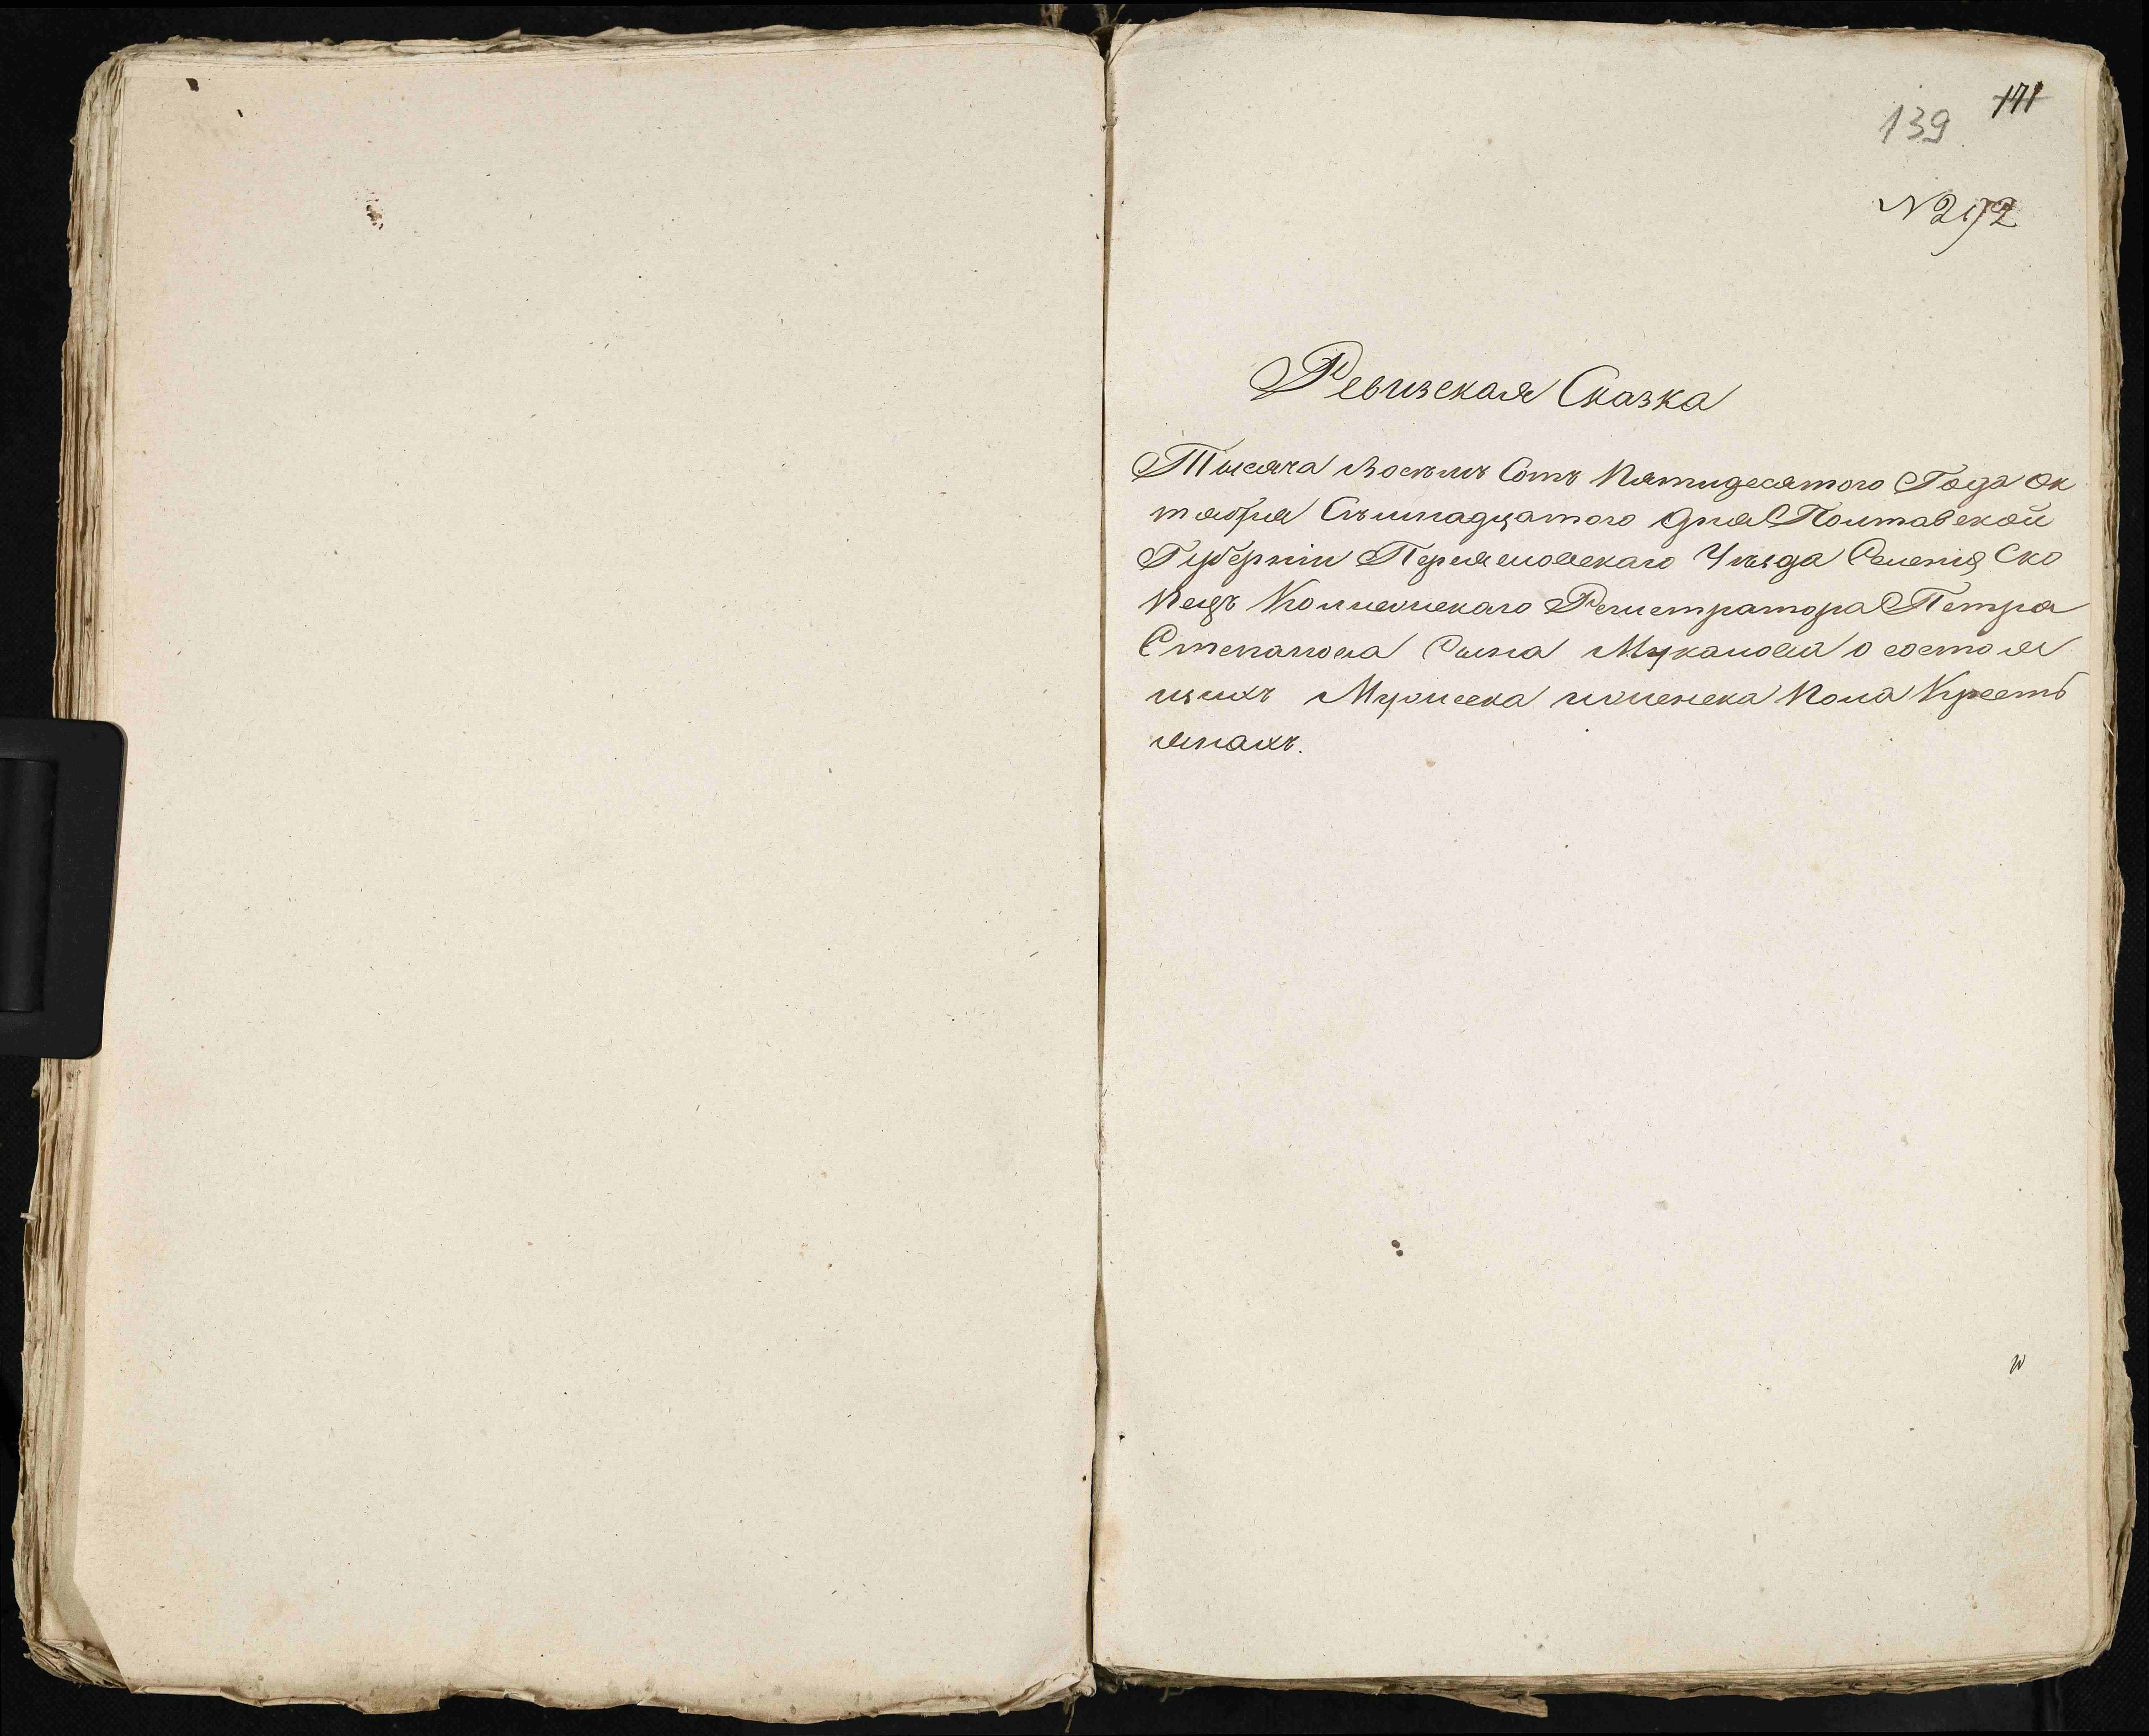 171
139
N 272
Ревизская Сказка
Тысяча восѣмъ Сотъ Пятидесятого Года Ок
тября Сѣмнадцатого дня Полтавской
Губерніи Переяеловскаго Уѣзда Селенія Ско
пецъ Колежскаго Регистратора Петра
Степанова Сына Муканова о состоя
щихъ Мужеска иженска Пола Кресть
янахъ.